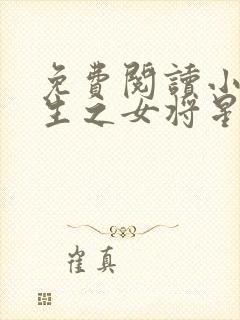 免費閱讀小
生之女將星
崔真